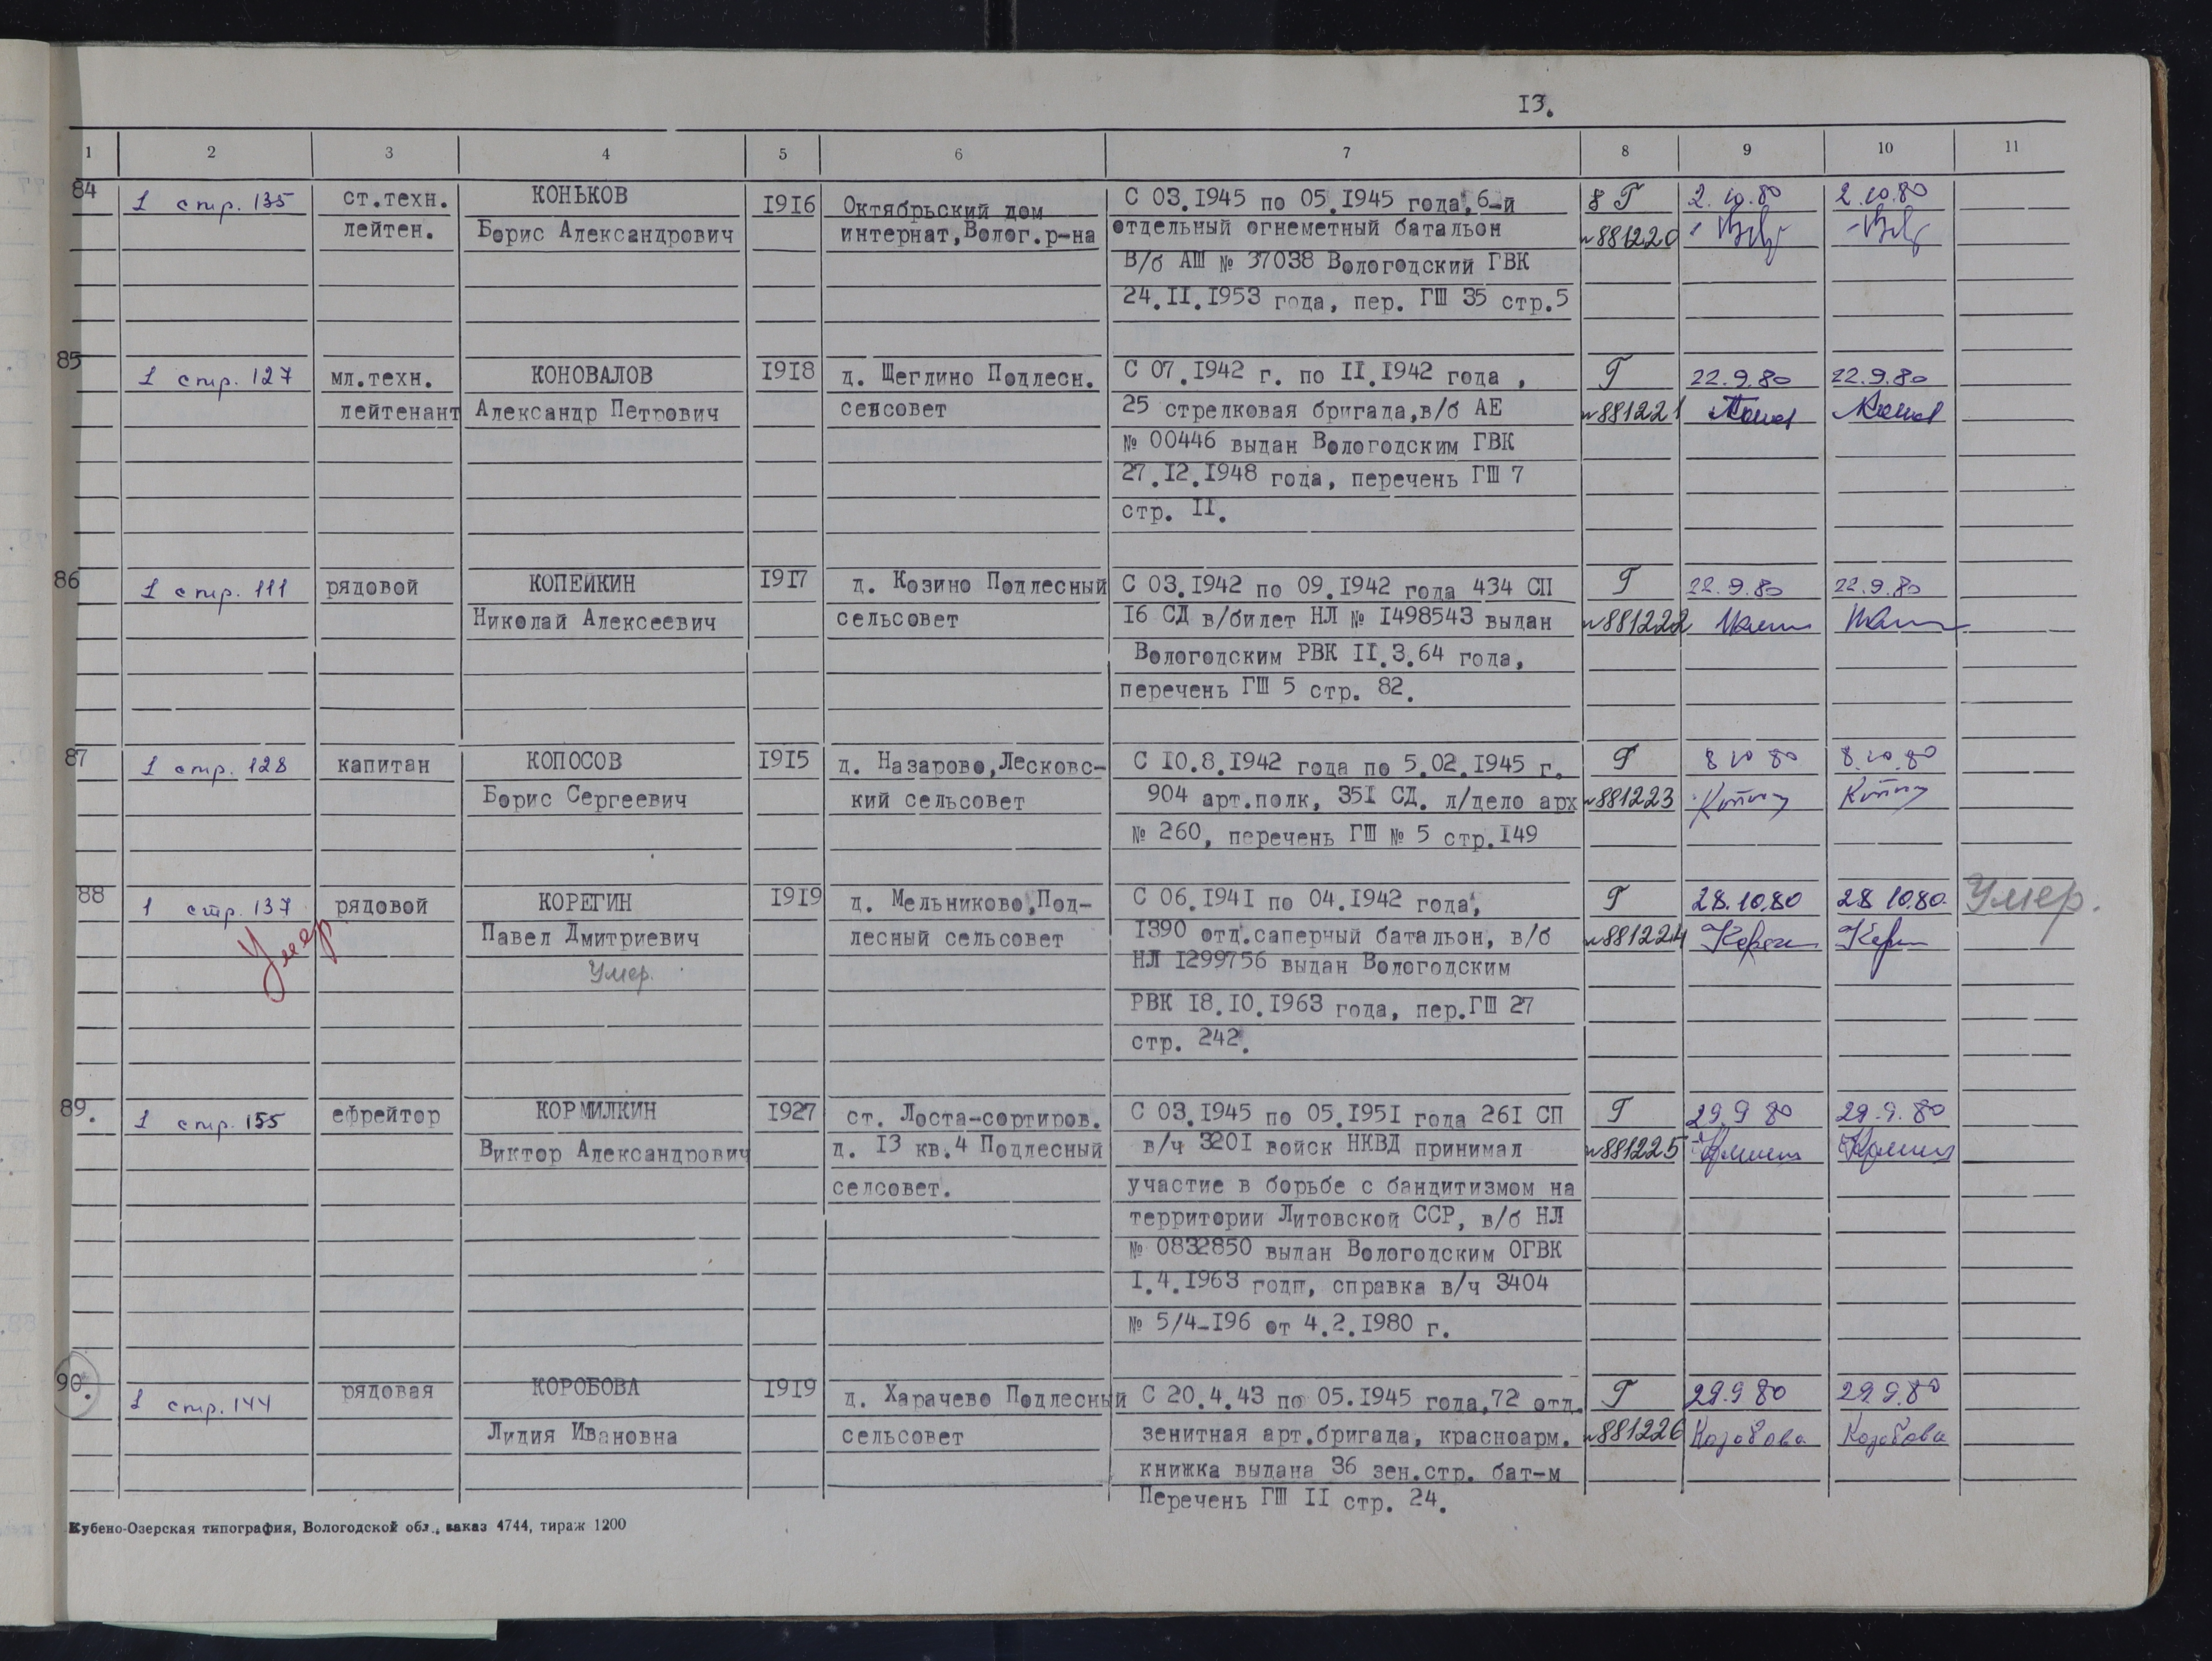 13.
1 2 3 4 5 6 7 8 9 10 11
84 1 стр. 135 ст.техн. КОНЬКОВ 1916 Октябрьский дом С 03.1945 по 05.1945 года, 6-й 8 Г 2.10.80 2.10.80
лейтен. Борис Александрович интернат,Волог.р-на отдельный огнеметный батальон №881220
В/б АШ № 37038 Вологодский ГВК
24.II.1953 года, пер. ГШ 35 стр.5
85 1 стр. 127 мл.техн. КОНОВАЛОВ 1918 д. Щеглино Подлесн. С 07.1942 г. по II.1942 года , Г 22.9.80 22.9.80
лейтенант Александр Петрович сенсовет 25 стрелковая бригада,в/б АЕ №881221
№ 00446 выдан Вологодским ГВК
27.12.1948 года, перечень ГШ 7
стр. II.
86 1 стр. 111 рядовой КОПЕЙКИН 1917 д. Козино Подлесный С 03.1942 по 09.1942 года 434 СП Г 22.9.80 22.9.80
Николай Алексеевич сельсовет 16 СД в/билет НЛ № 1498543 выдан №881222
Вологодским РВК II.3.64 года,
перечень ГШ 5 стр. 82.
87 1 стр. 128 капитан КОПОСОВ 1915 д. Назарово,Лесковс- С 10.8.1942 года по 5.02.1945 г. Г 8 10 80 8.10.80
Борис Сергеевич кий сельсовет 904 арт.полк, 351 СД. л/дело арх №881223
№ 260, перечень ГШ № 5 стр.149
88 1 стр. 137 рядовой КОРЕГИН 1919 д. Мельниково,Под- С 06.1941 по 04.1942 года, Г 28.10.80 28 10.80. Умер.
Умер Павел Дмитриевич лесный сельсовет 1390 отд.саперный батальон, в/б №881224
Умер. НЛ 1299756 выдан Вологодским
РВК 18.10.1963 года, пер.ГШ 27
стр. 242.
89. 1 стр. 155 ефрейтор КОРМИЛКИН 1927 ст. Лоста-сортиров. С 03.1945 по 05.1951 года 261 СП Г 29.9 80 29.9.80
Виктор Александрович д. 13 кв.4 Подлесный в/ч 3201 войск НКВД принимал №881225
селсовет. участие в борьбе с бандитизмом на
территории Литовской ССР, в/б НЛ
№ 0832850 выдан Вологодским ОГВК
1.4.1963 годп, справка в/ч 3404
№ 5/4-196 от 4.2.1980 г.
90. 1 стр. 144 рядовая КОРОБОВА 1919 д. Харачево Подлесный С 20.4.43 по 05.1945 года,72 отд. Г 29.9 80 29.9.80
Лидия Ивановна сельсовет зенитная арт.бригада, красноарм. №881226 Коробова Коробова
книжка выдана 36 зен.стр. бат-м
Перечень ГШ II стр. 24.
Кубено-Озерская типография, Вологодской обл., заказ 4744, тираж 1200